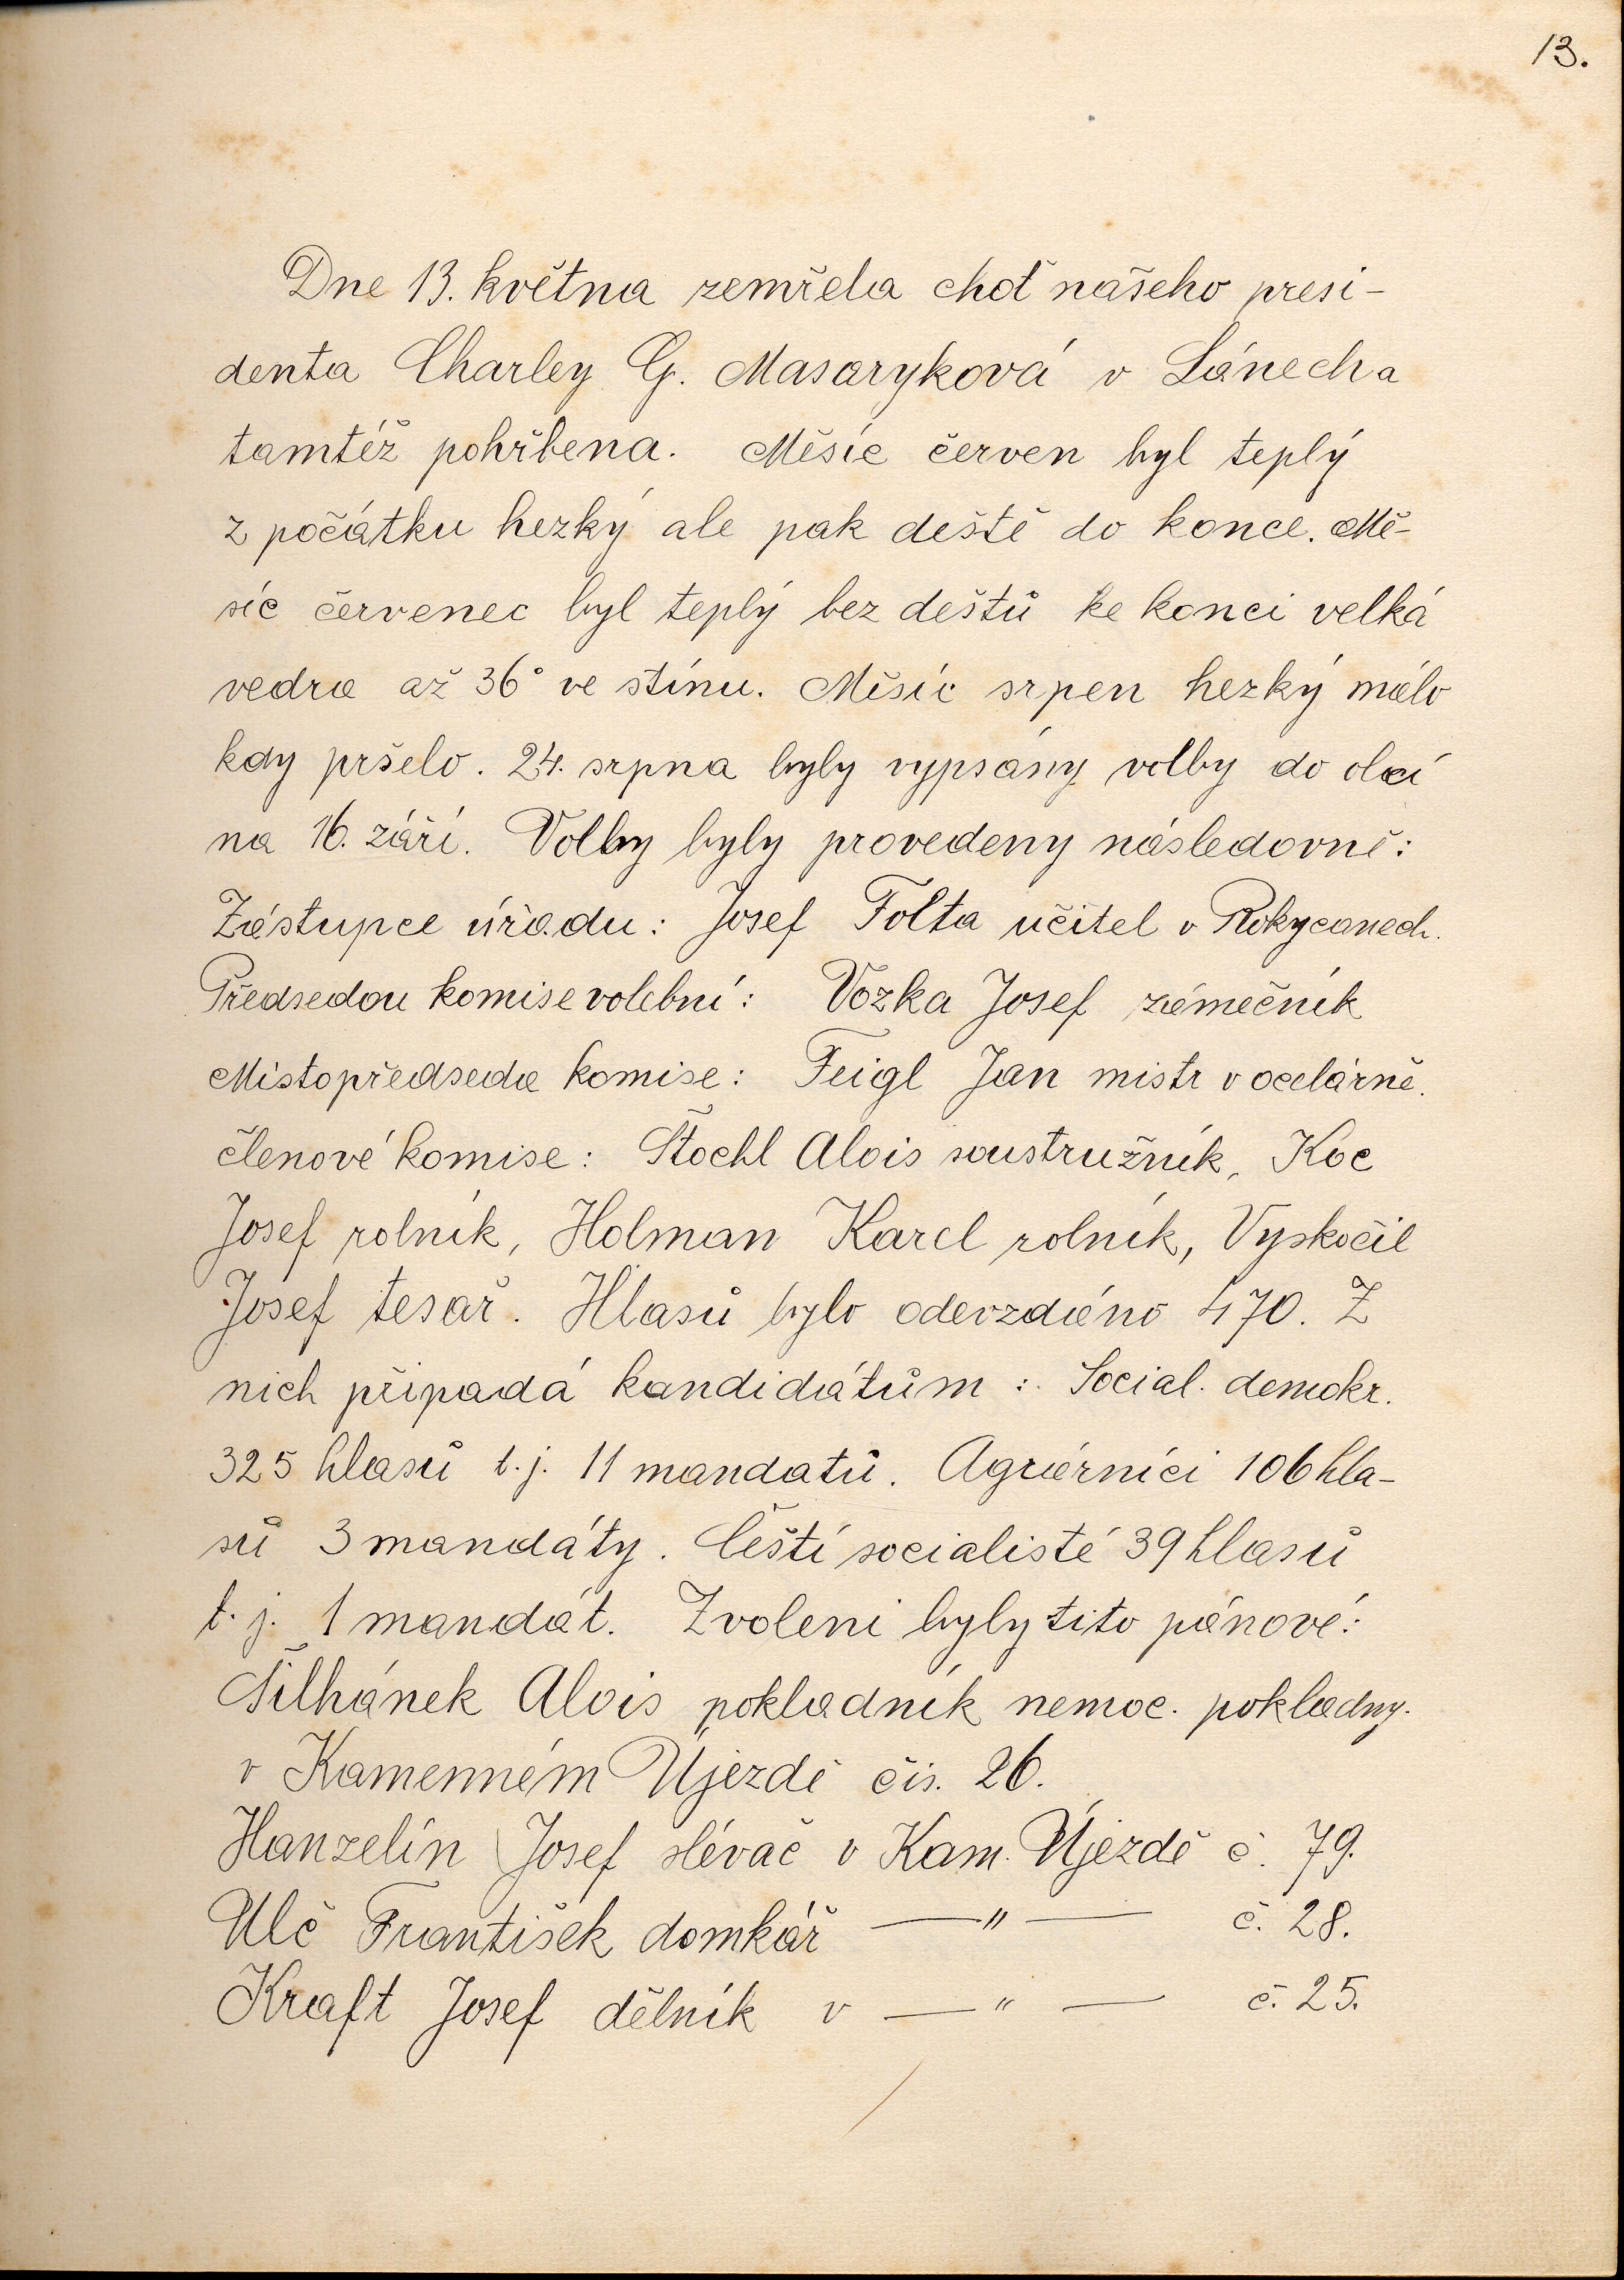 13.
Dne 13. května zemřela choť našeho presi-
denta Charley G. Masaryková v Lánech a
tamtéž pohřbena. Měsíc červen byl teplý
z počátku hezký ale pak deště do konce. Mě-
síc červenec byl teplý bez deštů ke konci velká
vedra až 36° ve stínu. Měsíc srpen hezký málo
kdy pršelo. 24. srpna byly vypsány volby do obcí
na 16. září. Volby byly provedeny následovně:
Zástupce úřadu: Josef Folta učitel v Rokycanech.
Předsedou komise volební: Vozka Josef zámečník
Místopředseda komise: Feigl Jan mistr v ocelárně.
členové komise: Štochl Alois soustružník, Koc
Josef rolník, Holman Karel rolník, Vyskočil
Josef tesař. Hlasů bylo odevzdáno 470. Z
nich připadá kandidátům: Social. demokr.
325 hlasů t.j. 11 mandatů. Agrárníci 106 hla-
sů 3 mandáty. Čeští socialisté 39 hlasů
t. j. 1 mandát. Zvoleni byly tito pánové:
Šilhánek Alois pokladník nemoc. pokladny.
v Kamenném Újezdě čís. 26.
Hanzelín Josef slévač v Kam. Újezdě č. 79.
Ulč František domkář —"— č. 28.
Kraft Josef dělník v —"— č. 25.